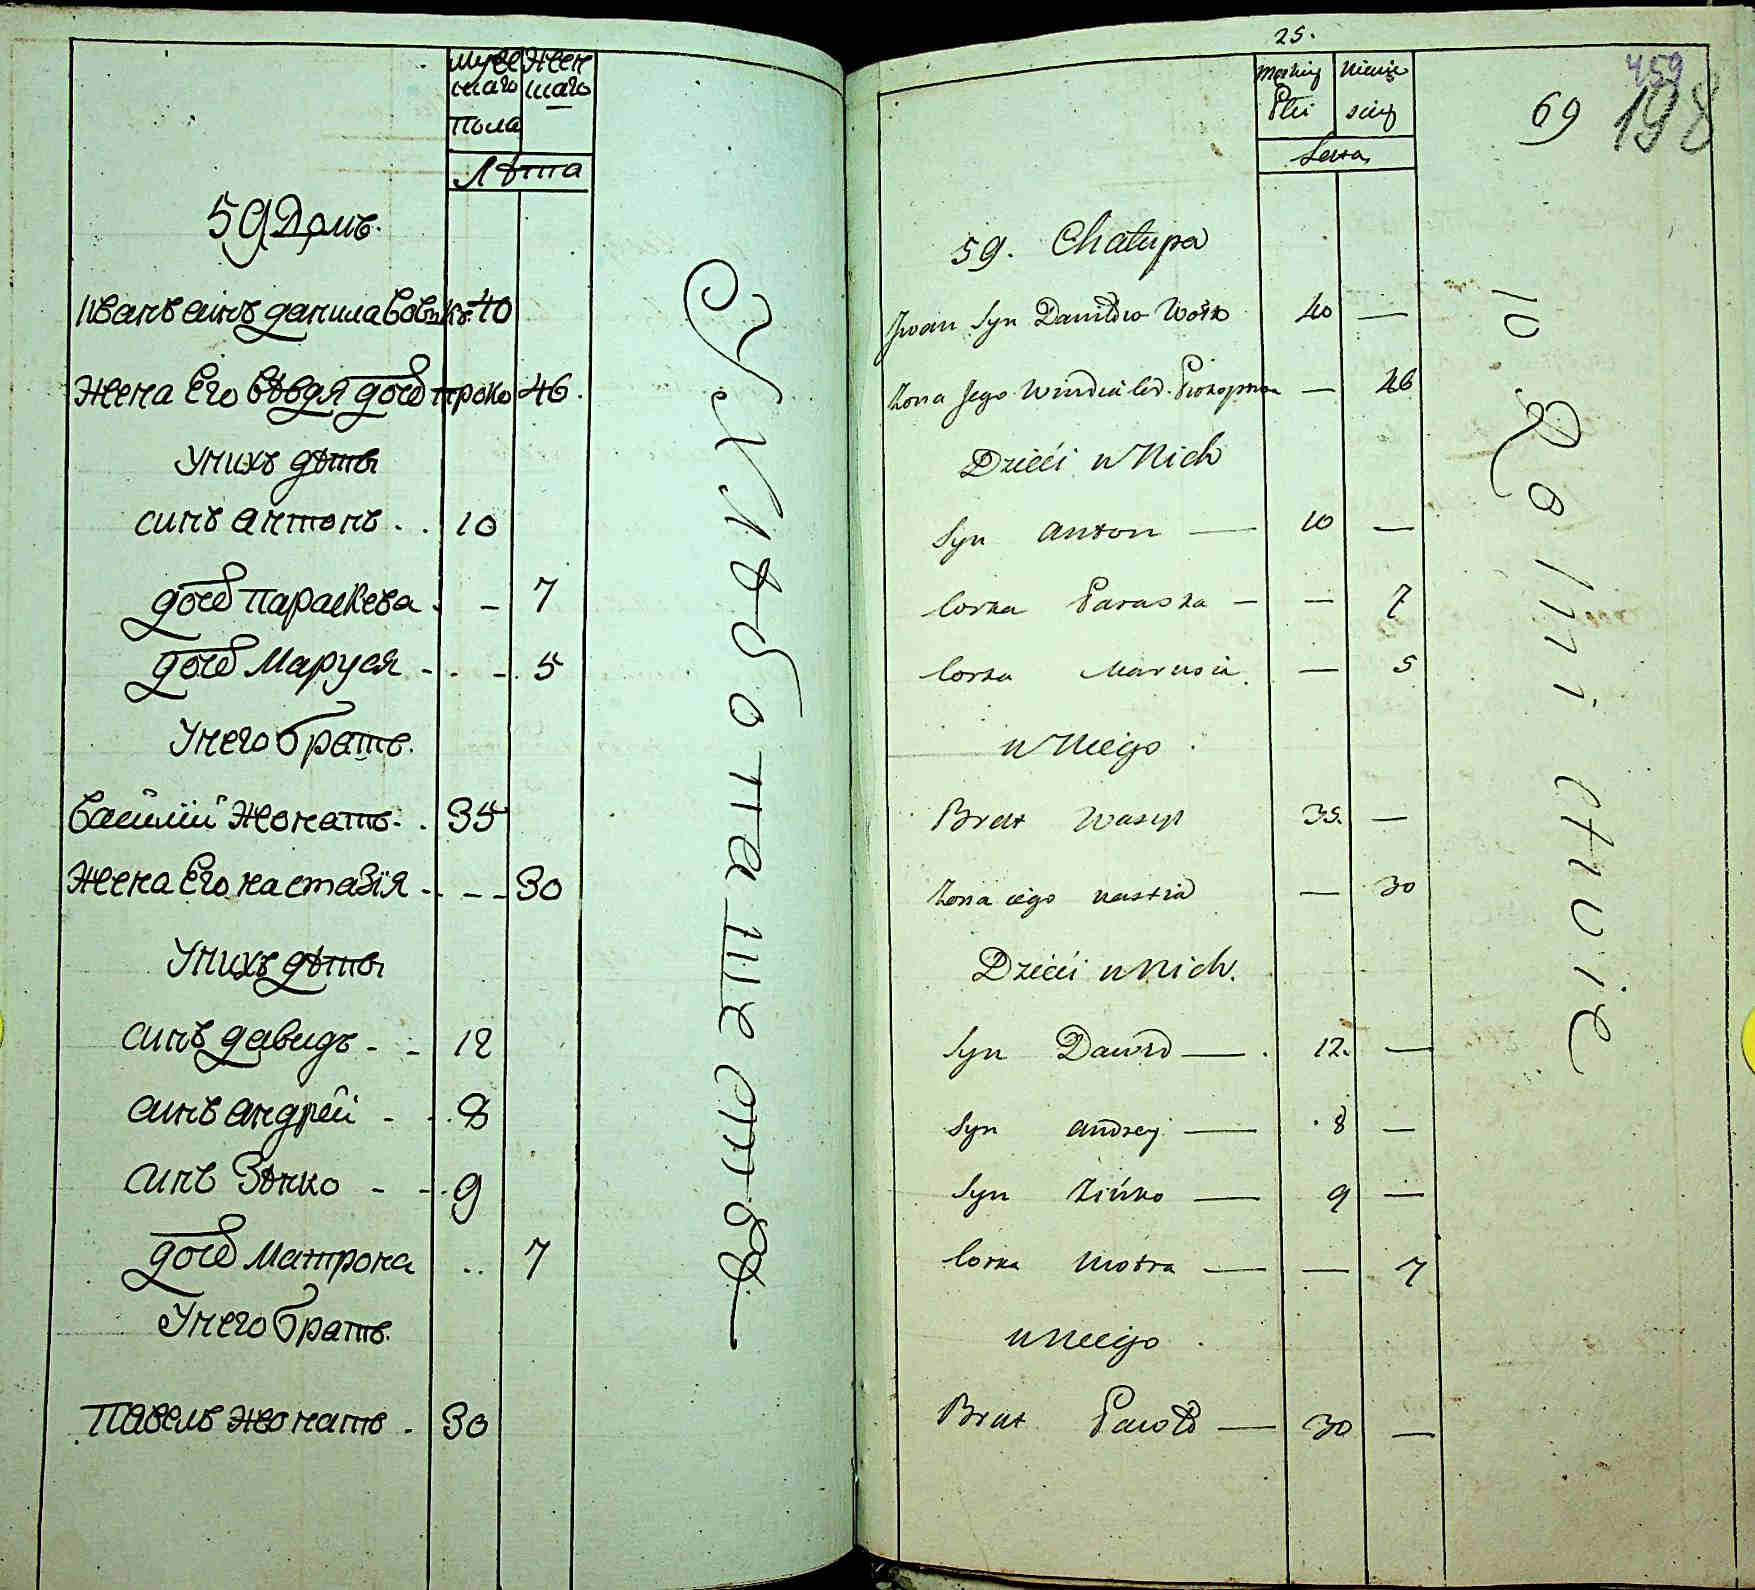 муже Жен
скаго скаго
пола
Лѣта
59 Домъ.
Иванъ синъ данила Вовкъ 40
Жена Его Вѣвдя дочь проко 46.
Унихъ дѣты
синъ антонъ . . 10
дочь Параскева . – 7
дочь Маруся - . - 5
Унего братъ.
Василій Жонатъ . . 35
Жена Его настазія - - - 30
Унихъ дѣты
синъ давидъ - - 12
синъ андрей - - 8
синъ Зѣнко - - 9
дочь Матрона .. 7
Унего братъ.
Павелъ жонатъ . 30
Хлѣбопашество
25.
459
69 198
Męskiey Niewie
Płci skiey
Lata
59. Chałupa
Jwan Syn Daniłow Wołk 40 —
Żona Jego Wiwdia Cór. Prokopowa — 46
Dzieći u Nich
Syn Anton — 10 —
Corka Paraska — — 7
Corka Marusia. — 5
u Niego .
Brat Wasyl 35. —
Żona iego Nastia — 30
Dzieći u Nich.
Syn Dawid — . 12. —
Syn Andrey — 8 —
Syn Zińko — 9 —
Corka Motra — — 7
u Niego .
Brat Paweł — 30 —
10. Rolnictwie